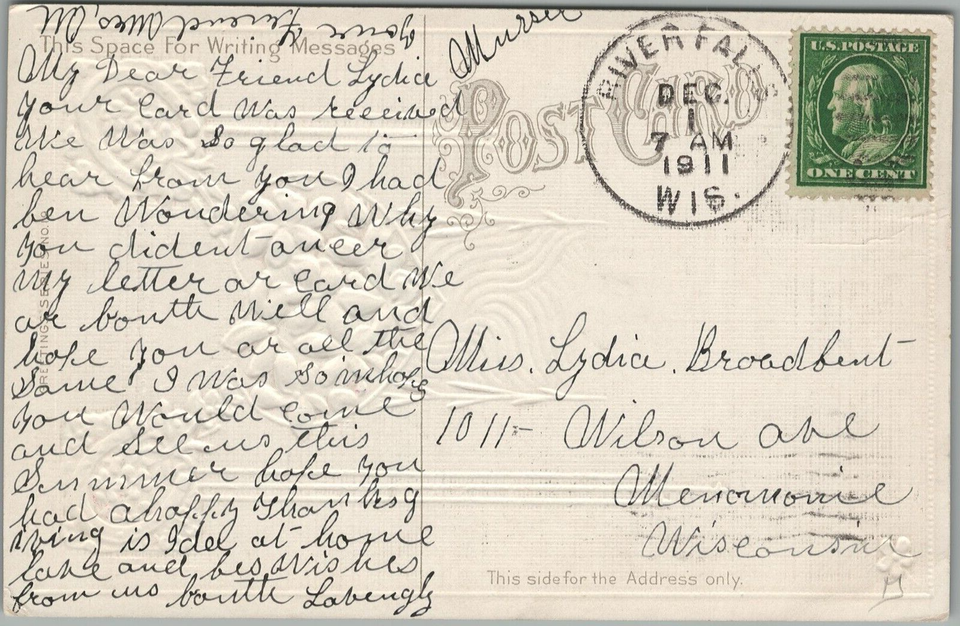 This Space For Writing Messages
My Dear Friend Lydia
your card was received
We Was So glad to
hear from you I had
ben Wondering Why
you dident anser
my letter or card We
ar bouth Well and
hope you ar all the
Same I Was So in hops
you Would come
and See us this
Summer hope you
had a happy Thanksg
iving is Idel at home
love and bes Wishes
from us bouth Lovengly
your Friend Mrs,
POST CARD
RIVER FALLS
DEC.
1
7 AM
1911
WIS.
U.S. POSTAGE
ONE CENT
Miss. Lydia. Broadbent
1011- Wilson ave
Menomonie
Wisconsin
This side for the Address only.